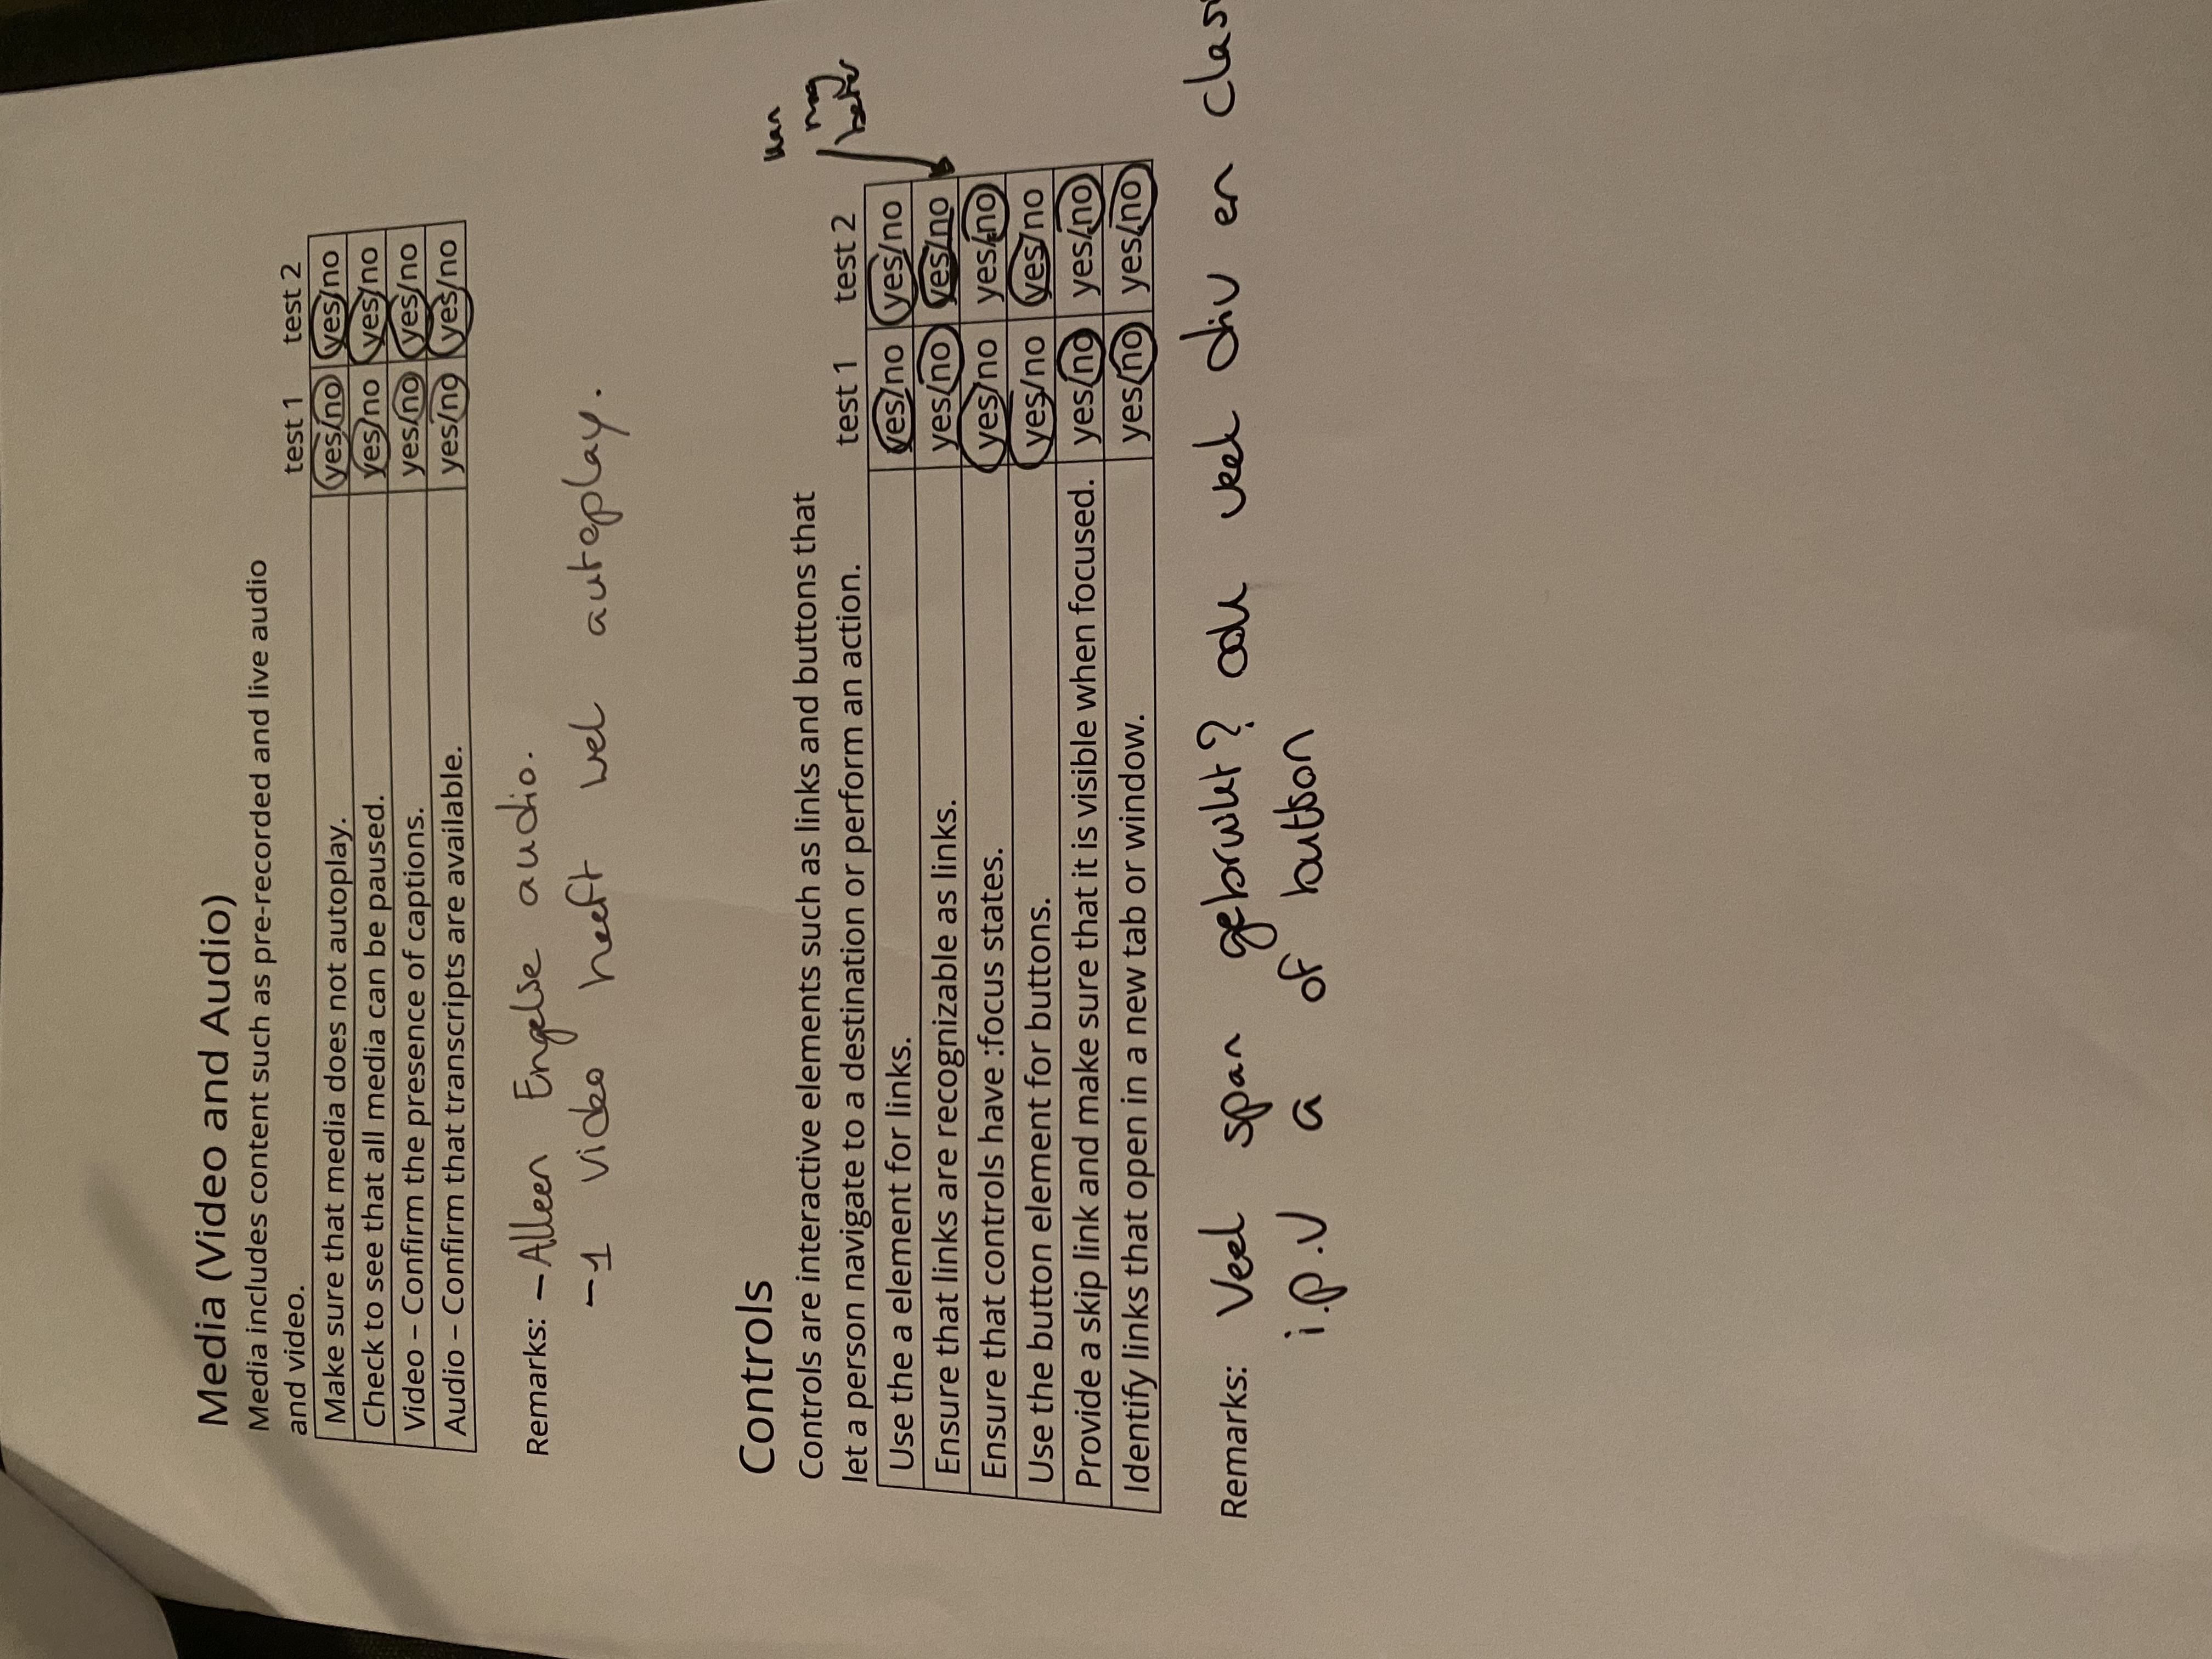 Media (Video and Audio)
Media includes content such as pre-recorded and live audio
and video. test 1 test 2
Make sure that media does not autoplay. yes/no yes/no
Check to see that all media can be paused. yes/no yes/no
Video – Confirm the presence of captions. yes/no yes/no
Audio – Confirm that transcripts are available. yes/no yes/no
Remarks: - Alleen Engelse audio.
- 1 video heeft wel autoplay.
Controls
Controls are interactive elements such as links and buttons that
let a person navigate to a destination or perform an action. test 1 test 2
kan
nog
beter
Use the a element for links. yes/no yes/no
Ensure that links are recognizable as links. yes/no yes/no
Ensure that controls have :focus states. yes/no yes/no
Use the button element for buttons. yes/no yes/no
Provide a skip link and make sure that it is visible when focused. yes/no yes/no
Identify links that open in a new tab or window. yes/no yes/no
Remarks: Veel span gebruikt? ook veel div en
i.p.v a of button